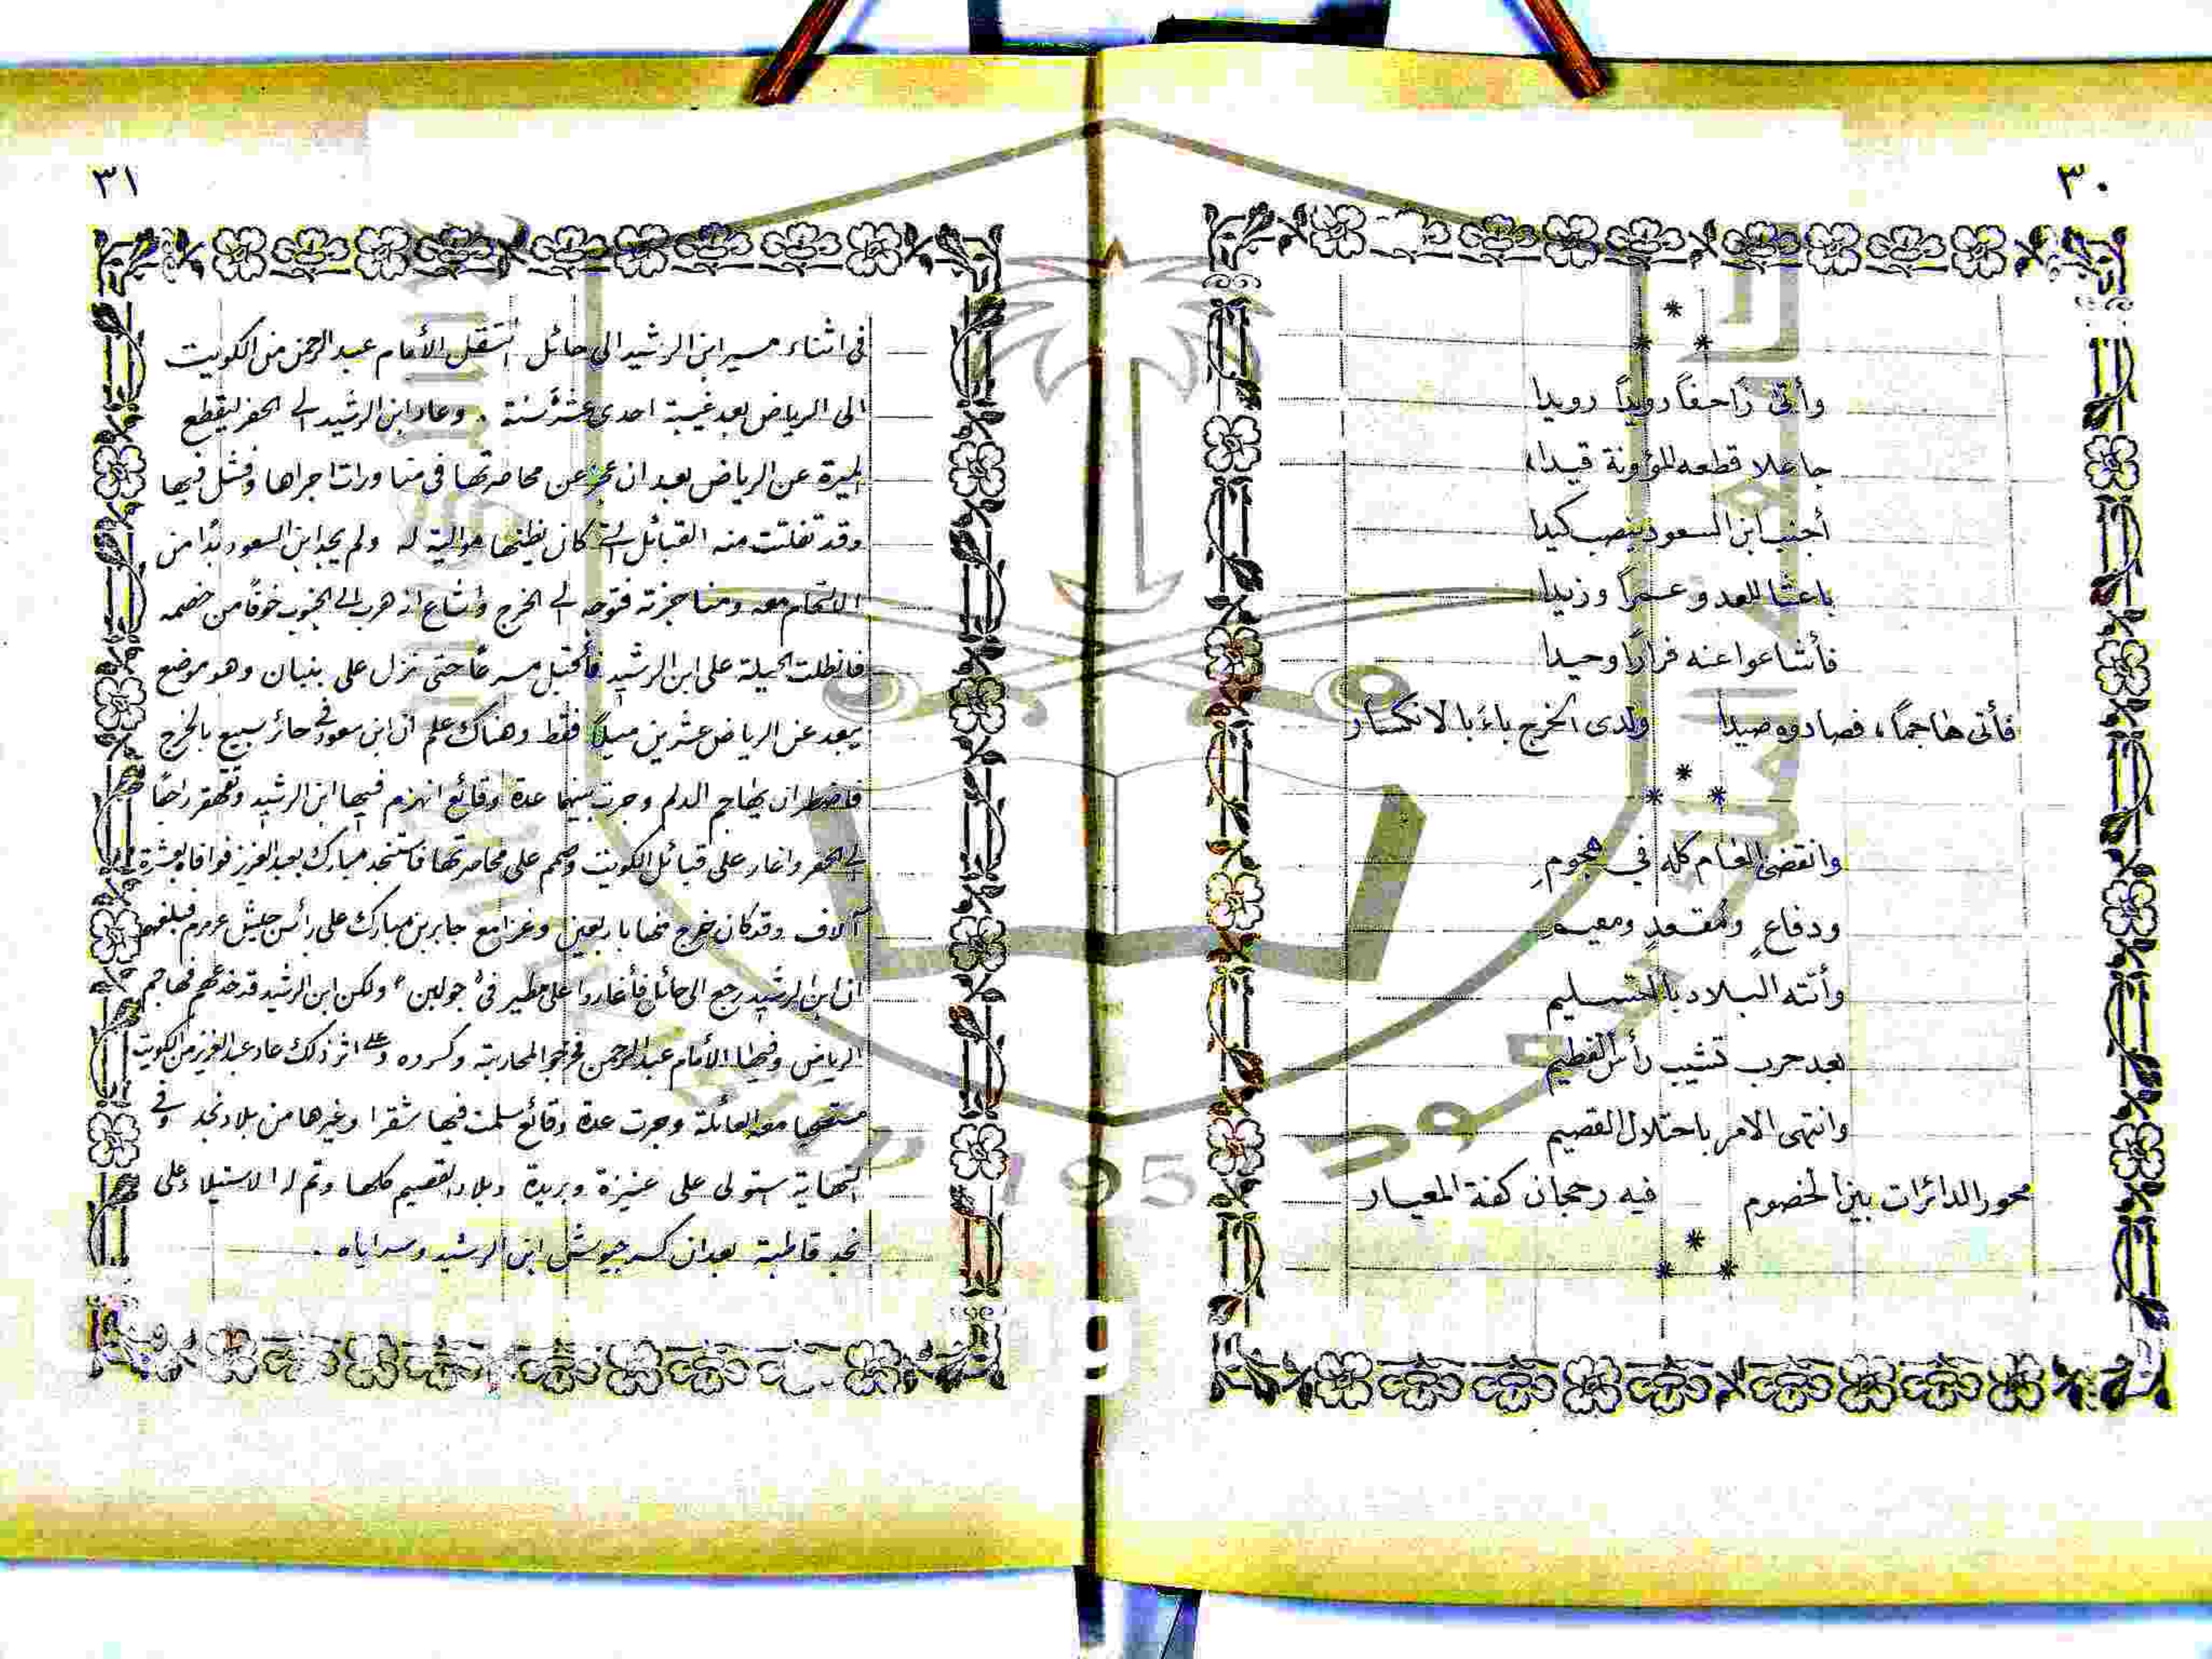 ٣٠
وأتى زاحفاً رويداً رويدا
جاعلا قطعه المؤونة قيدا
أجنب ابن السعود ينصب كيدا
باعثا للعدو عمراً وزيدا
فأشاعوا عنه فراراً وحيدا
فأتى هاجماً، فصادوه صيدا ولدى الخرج باء بالانكسار
وانقضى العام كله في هجومِ
ودفاعٍ ومُقعدٍ ومقيمِ
وأتته البلاد بالتسليم
بعد حرب تشيب رأس الفطيم
وانتهى الامر باحتلال القصيم
محور الدائرات بين الخصوم فيه رجحان كفة المعيار
٣١
في اثناء مسير ابن الرشيد الى حائل انتقل الأمام عبد الرحمن من الكويت
الى الرياض بعد غيبة احدى عشرة سنة . وعاد ابن الرشيد الى الحفر ليقطع
الميرة عن الرياض بعد ان عجز عن محاصرتها في مناورات اجراها وفشل فيها
وقد تفلتت منه القبائل التي كان يظنها موالية له ولم يجد ابن السعود بدًا من
الالتحام معه ومناجزته فتوجه الى الخرج واشاع انه هرب الى الجنوب خوفًا من خصمه
فانطلت الحيلة على ابن الرشيد فأقبل مسرعًا حتى نزل على بنبان وهو موضع
يبعد عن الرياض عشرين ميلاً فقط وهناك علم ان ابن سعود في حائر سبيع بالخرج
فاضطر ان يهاجم الدلم وجرت بينهما عدة وقائع انهزم فيها ابن الرشيد وتقهقر راجعًا
الى الحفر واغار على قبائل الكويت وصمم على محاصرتها فاستنجد مبارك بعبد العزيز فوافاه بعشرة
آلاف وقد كان خرج منها باربعين وغزا مع جابر بن مبارك على رأس جيش عرمرم فبلغهم
ان ابن الرشيد رجع الى حائل فأغاروا على مطير في "جولبن" ولكن ابن الرشيد قد خدعهم فهاجم
الرياض وفيها الأمام عبد الرحمن فخرجوا لمحاربته وكسروه وعلى اثر ذلك عاد عبد العزيز من الكويت
مع العائلة وجرت عدة وقائع سلمت فيها شقرا وغيرها من بلاد نجد وفي
النهاية استولى على عنيزة وبريدة وبلاد القصيم كلها وتم له الاستيلاء على
نجد قاطبة بعد ان كسر جيوش ابن الرشيد وسراياه .